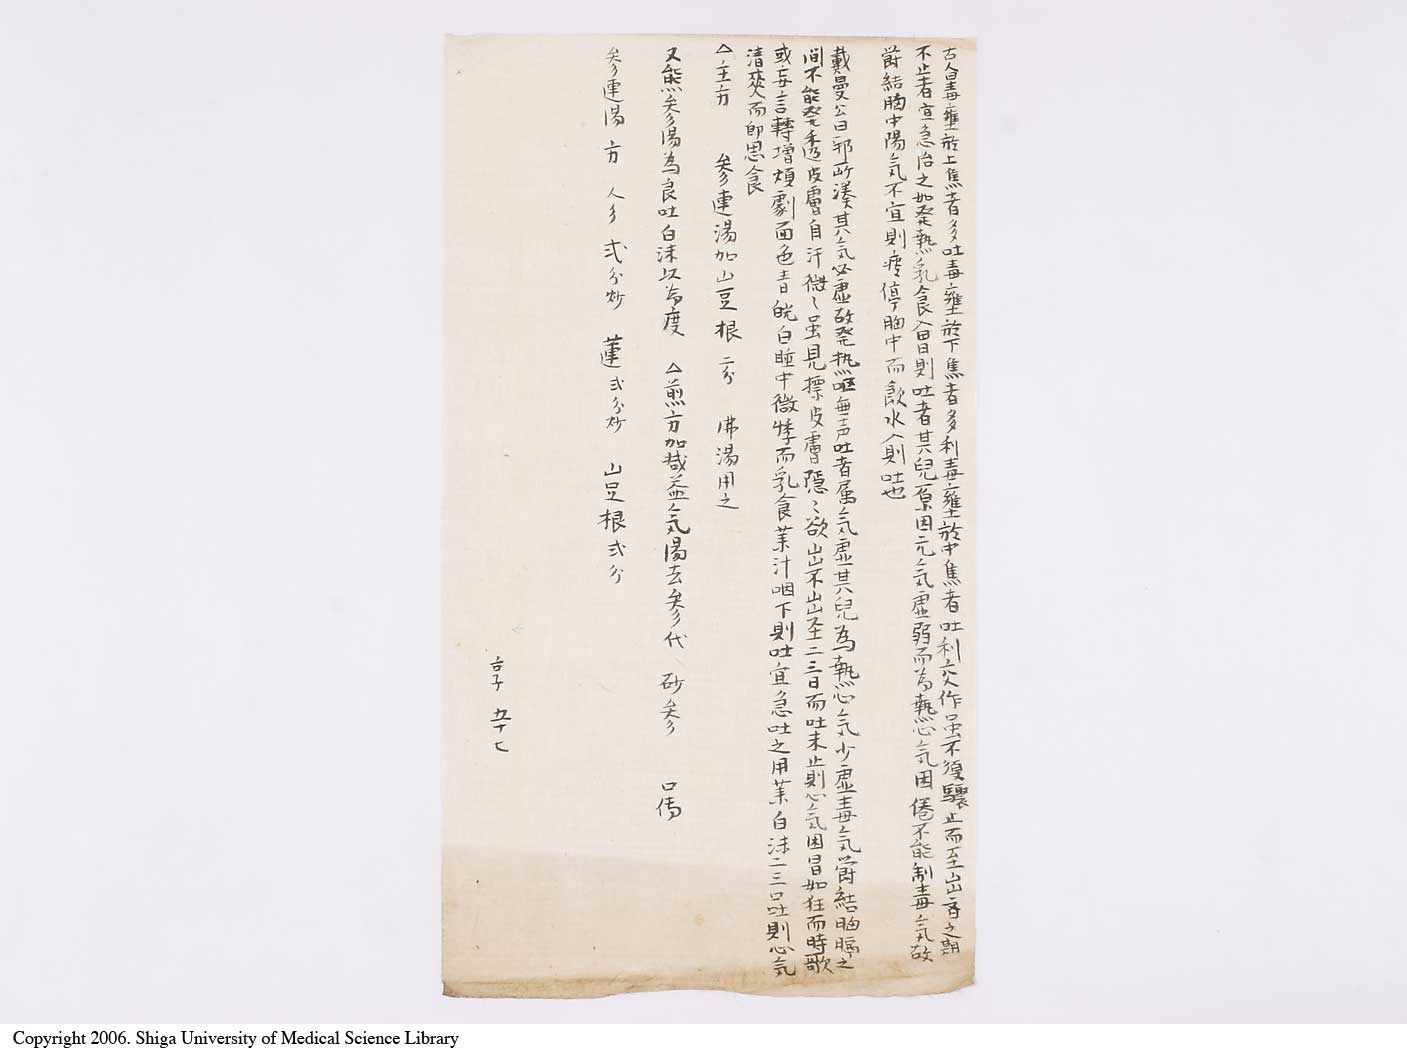 古人曰毒壅於上焦者多吐毒壅於下焦者多利毒壅於中焦者吐利交作虽不復驟止而至出斉之期
不止者宜急治之如発熱乳食入胃則吐者其兒原因元气虚弱而為熱心气困倦不能制毒气故
欝結胸中陽气不宜則痰停胸中而飲水入則吐也
戴曼公曰邪所湊其气必虚故発热嘔無声吐者属气虚其兒為熱心气少虚毒气欝結胸膈之
间不能発透皮膚自汗微〻虽見摽皮膚隠〻欲出不出至二三日而吐未止則心气困冒如狂而時歌
或妄言轉增煩劇面色青㿠白睡中微悸而乳食薬汁咽下則吐宜急吐之用薬白沫二三口吐則心气
清爽而即思食
△主方 参連湯加山豆根二分 沸湯用之
又熊参湯為良吐白沫以為度 △煎方加减益气湯去参代 砂参 口傳
参連湯 方 人参 弐分炒 蓮弐分炒 山豆根弐分
享 五十七